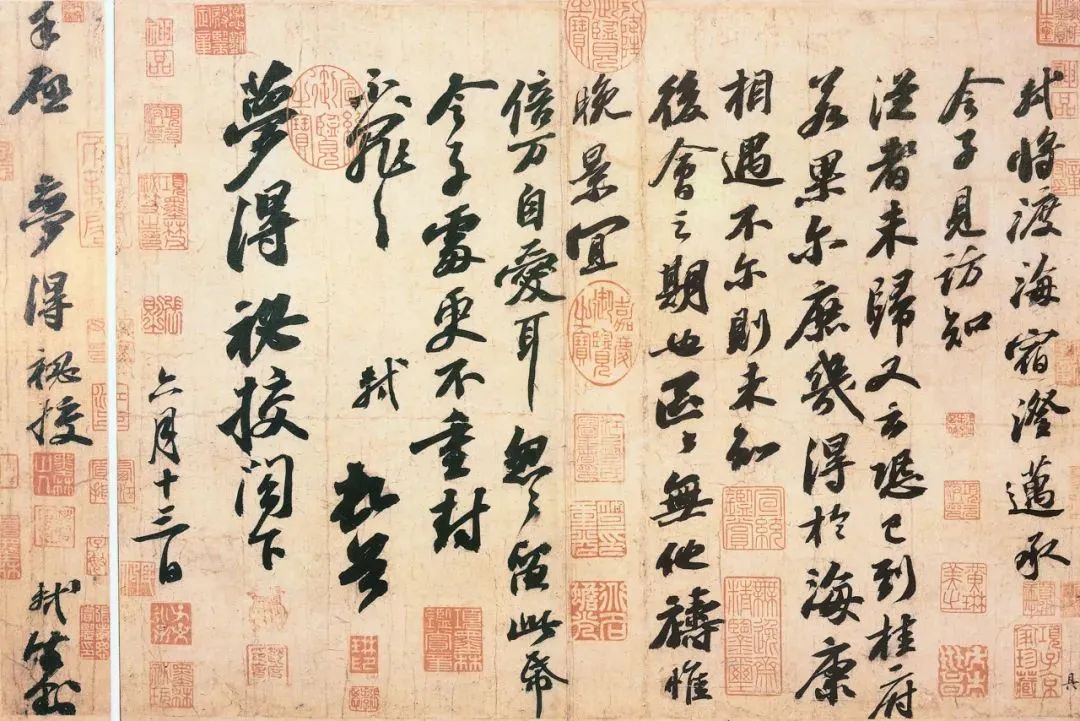 軾將渡海宿澄邁承
令子見訪知
從者未歸又云恐已到桂府
若果尔庶幾得於海康
相遇不尔則未知
後會之期也區々無他禱惟
晚景宜
倍万自愛耳忽々留此帋
令子處更不重封
不罪々
軾 頓首
夢得祕校閣下
六月十三日
手啟 夢得祕校 軾謹封